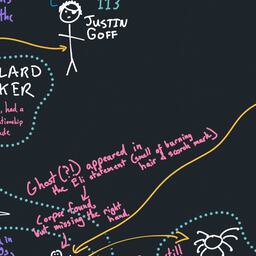 113
the
JUSTIN
GOFF
LARD
KER
, had a
tionship
de
Ghost(?!) appeared in
the Eli statement (smell of burning
hair & scorch mark)
Corpse found,
but missing the right
hand.
still
d in